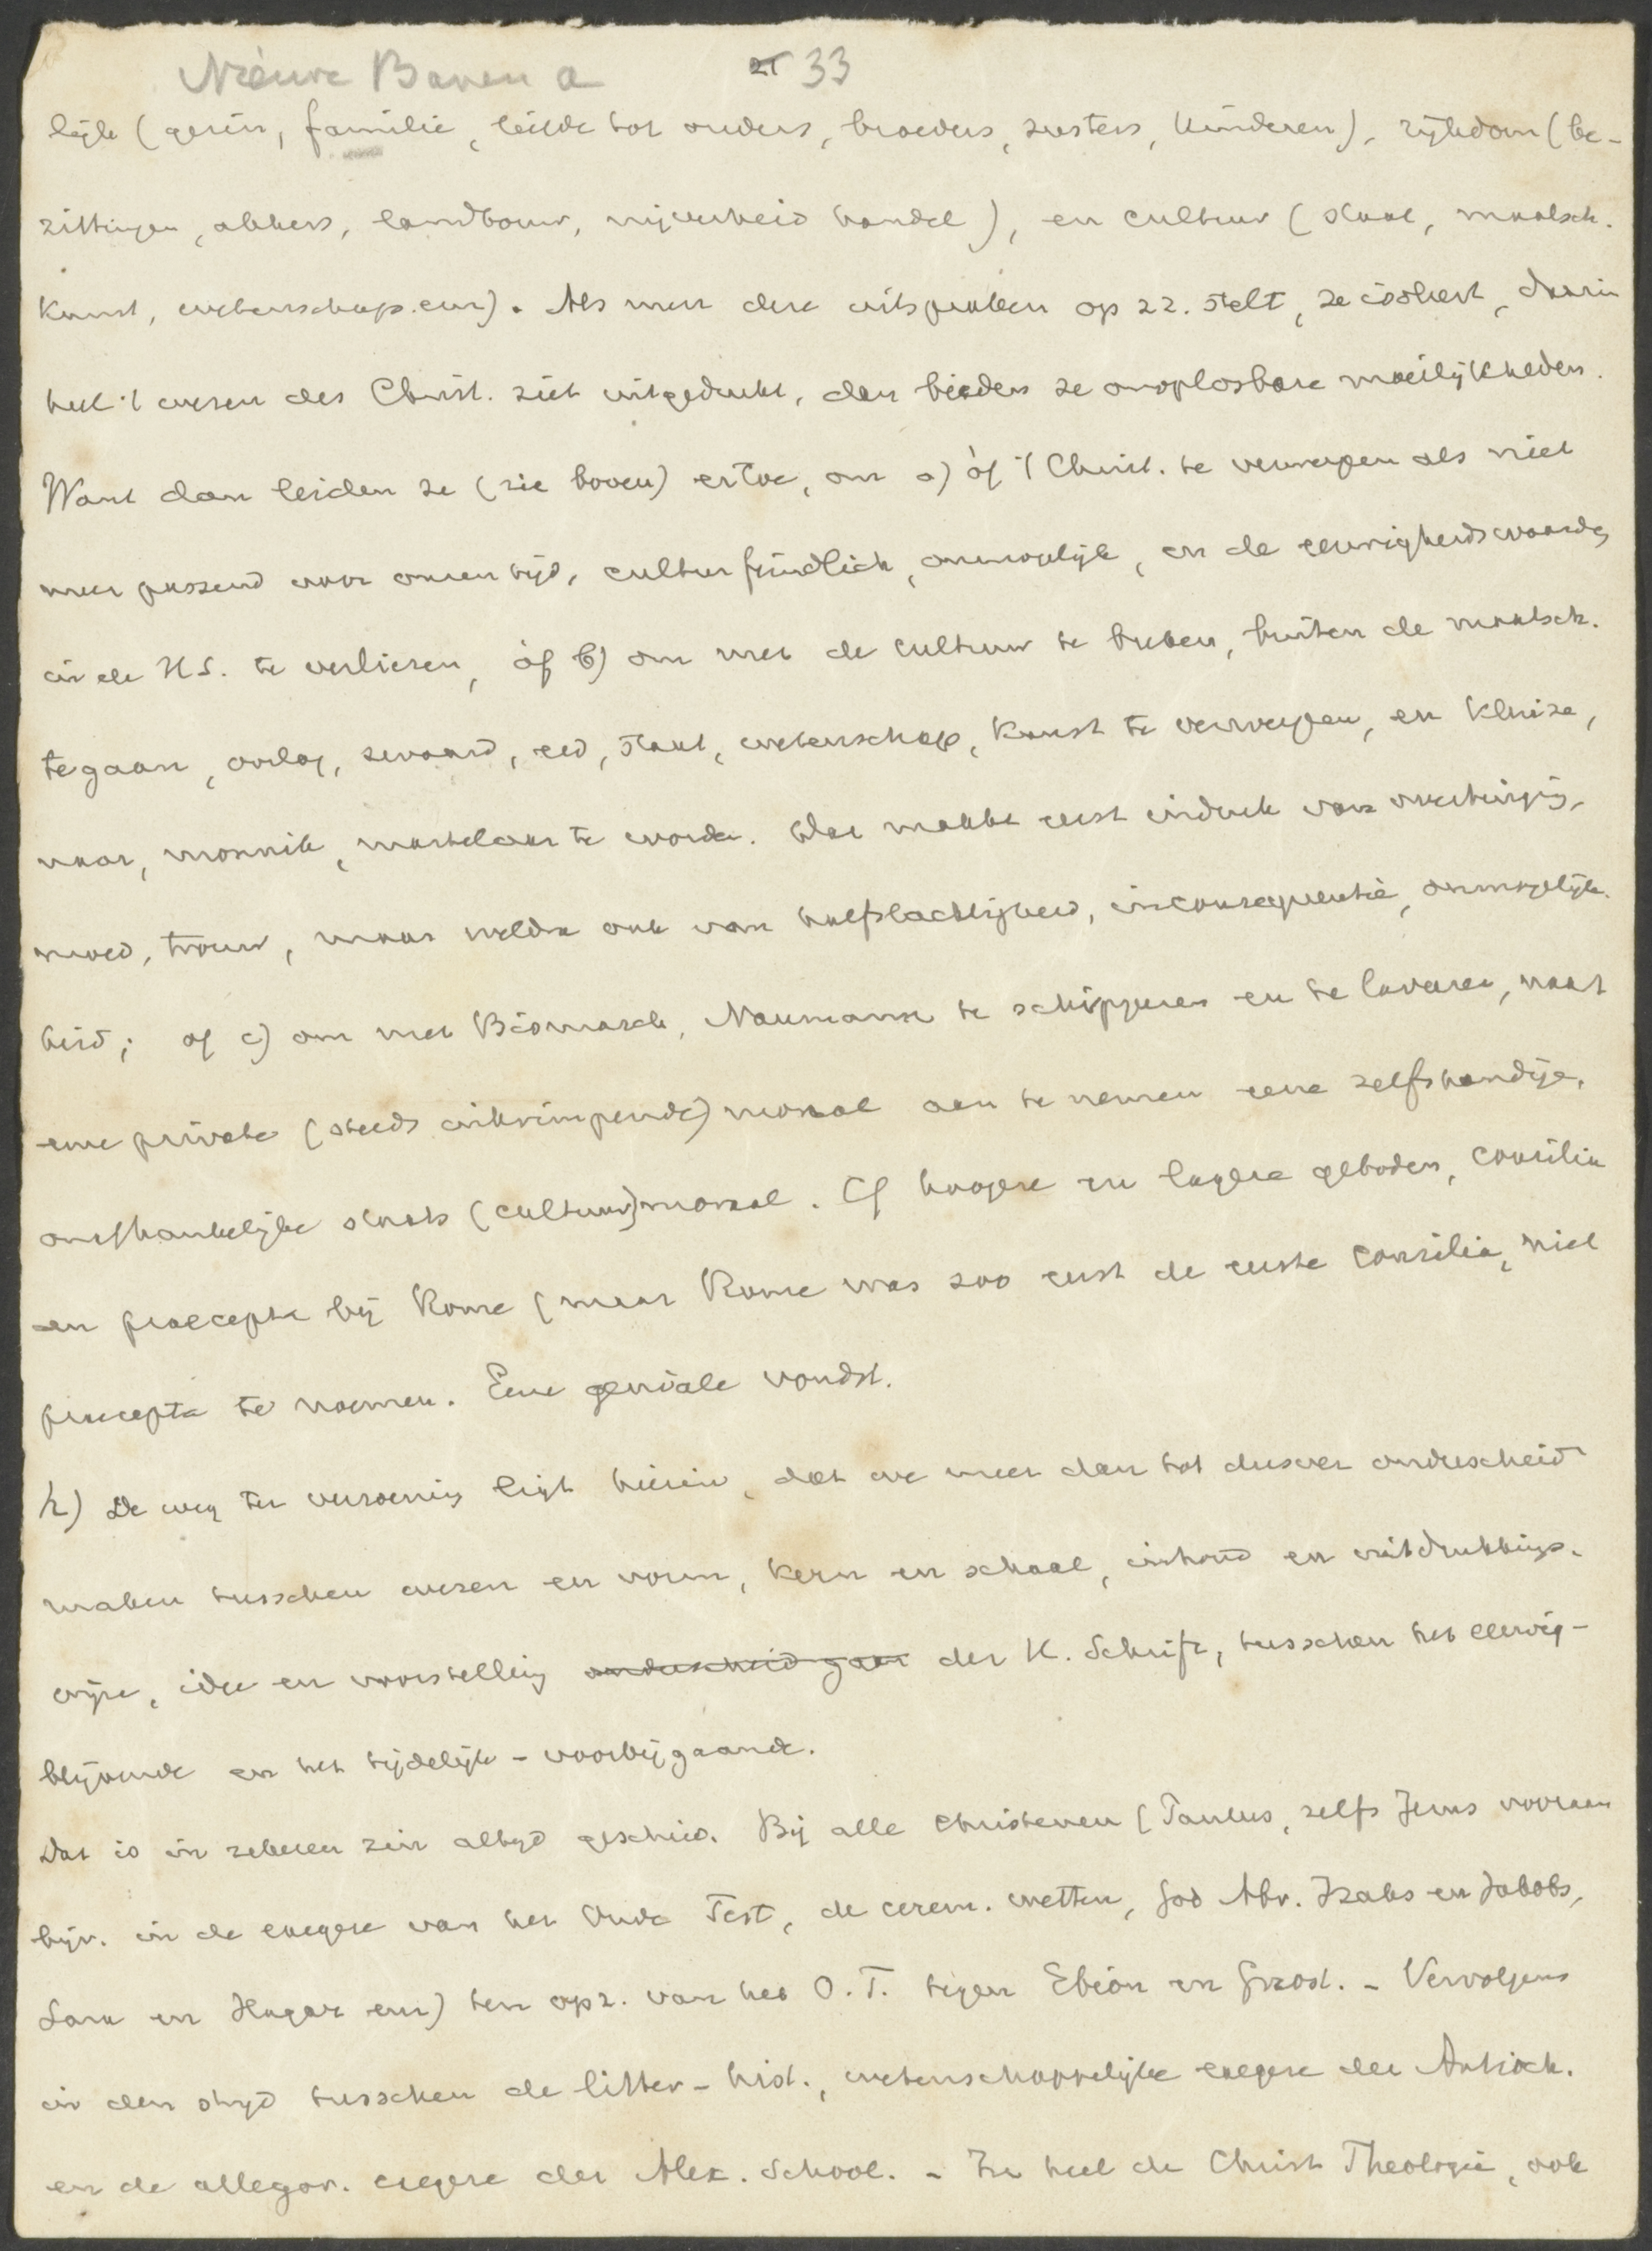 Nieuwe Banen a 21 33
lijk (gezin, familie, liefde tot ouders, broeders, zusters, kinderen), rijkdom (be-
zittingen, akkers, landbouw, nijverheid handel), en cultuur (staat, maatsch.
kunst, wetenschap enz). Als men deze uitspraken op zz. stelt, ze isoleert, daarin
heel 't wezen des Christ. ziet uitgedrukt, dan bieden ze onoplosbare moeilijkheden.
Want dan leiden ze (zie boven) ertoe, om a) òf 't Christ. te verwerpen als niet
meer passend voor onzen tijd, culturfeindlich, onmogelijk, en de eeuwigheidswaarde
in de H S. te verliezen, òf b) om met de cultuur te breken, buiten de maatsch.
te gaan, oorlog, zwaard, eed, staat, wetenschap, kunst te verwerpen, en kluize,
naar, monnik, martelaar te worden. Dat maakt eerst indruk van overtuiging,
moed, trouw, maar weldra ook van halfslachtigheid, inconsequentie, onmogelijk-
heid; of c) om met Bismarck, Naumann te schipperen en te laveren, naast
eene private (steeds inkrimpende) moraal aan te nemen eene zelfstandige,
onafhankelijke staats (cultuur)moraal. Cf hoogere en lagere geboden, consilia
en praecepta bij Rome (maar Rome was zoo  de eerste consilia, niet
praecepta te noemen. Eene geniale vondst.
h) De weg ter verzoening ligt hierin, dat we meer dan tot dusver onderscheid
maken tusschen wezen en vorm, kern en schaal, inhoud en uitdrukkings-
wijze, idee en voorstelling onderscheid gaan der H. Schrift, tusschen het eeuwig-
blijvende en het tijdelijk - voorbijgaande.
Dat is in zekeren zin altijd geschied. Bij alle Christenen (Paulus, zelfs Jezus vooraan
bijv. in de exegese van het Oude Test, de cerem. wetten, God Abr. Izaks en Jakobs,
Sara en Hagar enz) ten opz. van het O. T. tegen Ebion en Gnost. - Vervolgens
in den strijd tusschen de litter - hist., wetenschappelijke exegese der Antioch.
en de allegor. exegese der Alex. School. - In heel de Christ Theologie, ook